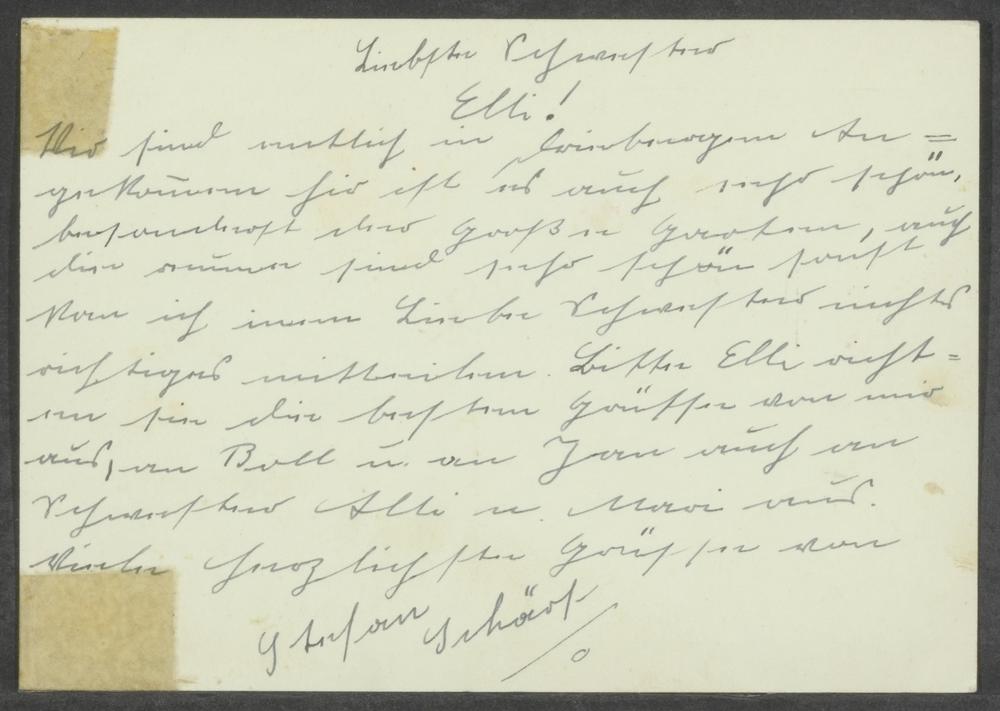 Liebste Schwester
Elli!
Wir sind entlich in Driebergen An=
gekommen hir ist es auch sehr schön,
besonderst der Große Garten, auch
die reume sind sehr schön sonst
kan ich inen Liebe Schwester nichts
richtiges mitteilen. Bitte Elli richt=
en sie die besten Grüsse von mir
aus, an Boll u. an Jan auch an
Schwester Alli u. Mari aus.
Viele herzlichste Grüsse von
Stefan Schärf